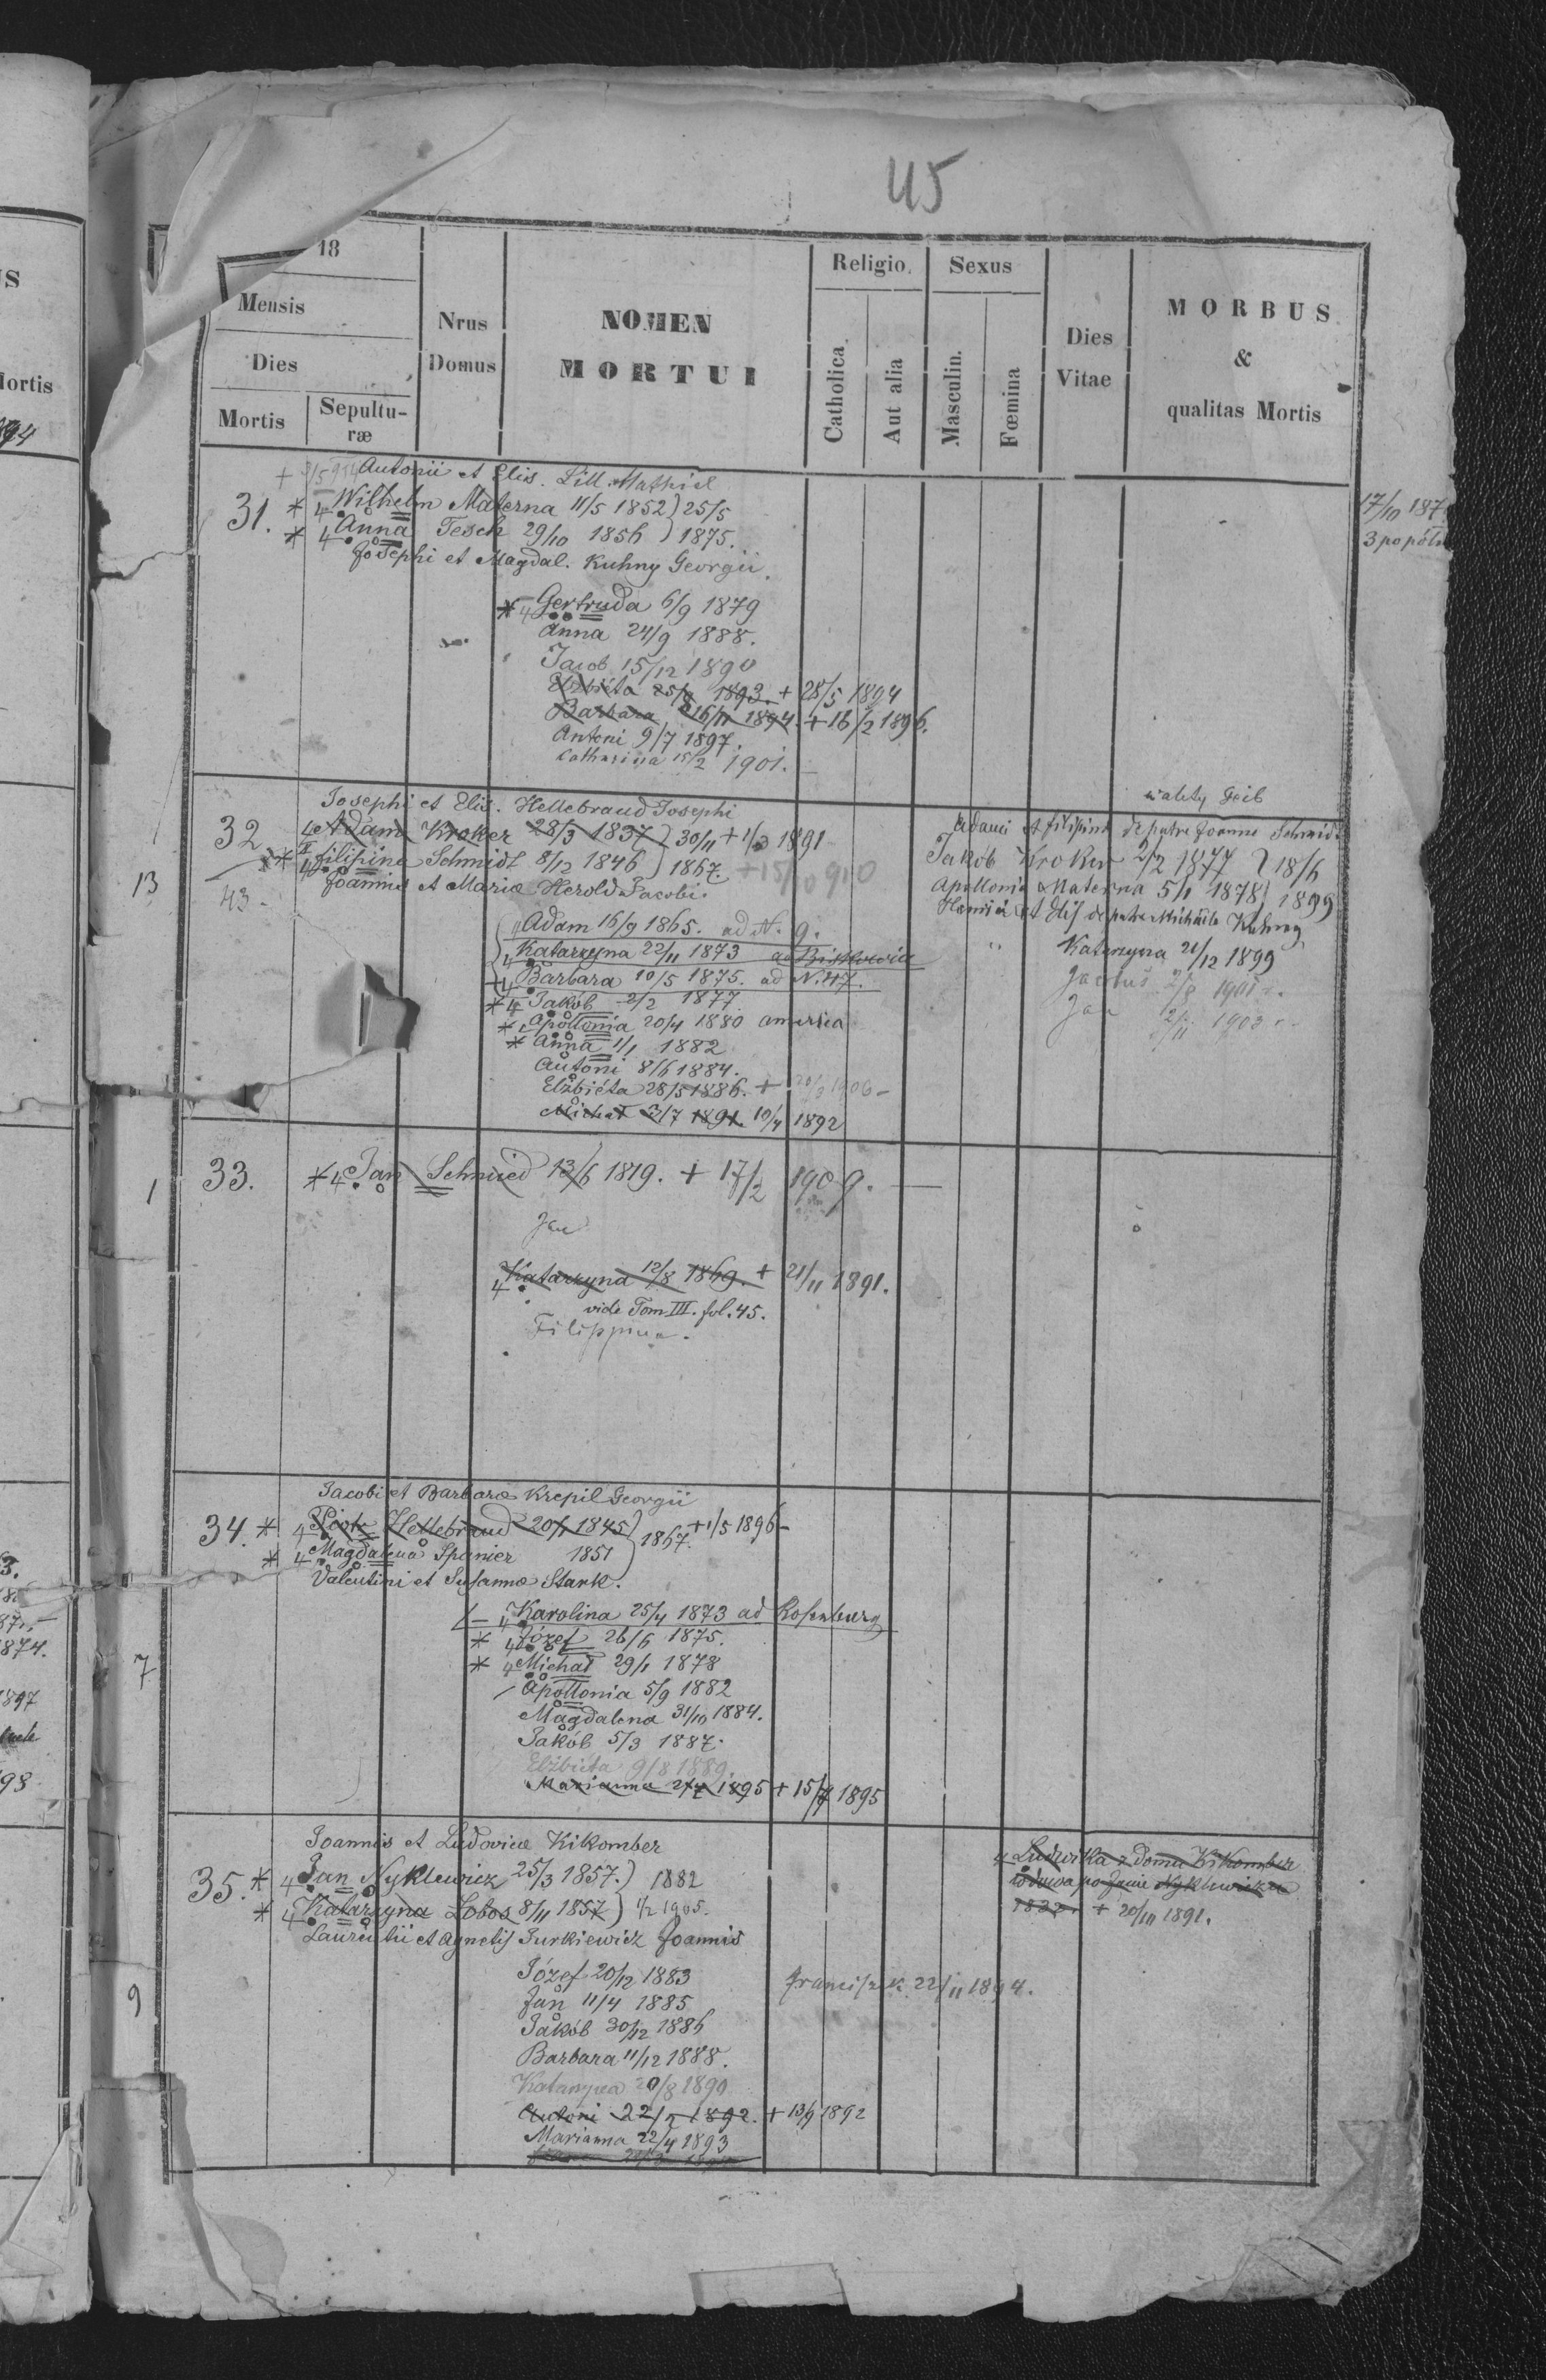 45
18
Mensis
Dies
Mortis
Sepultu-
ræ
Nrus
Domus
NOMEN
MORTUI
Religio.
Catholica.
Aut alia
Sexus
Masculin.
Fœmina
Dies
Vitae
MORBUS
&
qualitas Mortis
Antonii et Elis. Lill Mathiel
31. * 4 Wilhelm Materna 11/5 1852 } 25/5
* 4 Anna Tesch 29/10 1856 } 1875.
Josephi et Magdal. Kuhny Georgii
17/10 187
* 4 Gertruda 6/9 1879
Anna 24/9 1888.
Jacob 15/12 1890
Elżbiéta 25/ 1893. + 28/5 1894
Barbara 16/11 1894. + 16/2 1896.
Antoni 9/7 1897.
Catharina 15/2 1901.
13
Josephi et Elis. Hellebrand Josephi
32 4 Adam Kroker 28/3 1837 } 30/11 + 1/3 1891
* Filipine Schmidt 8/12 1846 } 1867. + 15/10 910
43
Joannis et Mariæ Herold Jacobi.
Adam 16/9 1865. ad N. 9.
4 Katarzyna 22/11 1873
4 Barbara 10/5 1875. ad N. 47.
* 4 Jakób 2/2 1877
* Apollonia 20/4 1880 america
* Anna 1/1 1882
Antoni 8/6 1884.
Elżbiéta 28/5 1886. + 1906
Michał 3/7 1891. 10/4 1892
Adami et filipina de patre Joanne Schmidt
Jakób Kroker 2/2 1877 } 18/6
Apollonia Materna 5/1 1878 } 1899
et Elis de patre Michaile Kuhny
Katarzyna 21/12 1899
1901
Jan 1903
1
33. * 4 Jan Schmied 13/6 1819. + 17/2 1909.
Jan
4 Katarzyna 12/8 1869. + 21/11 1891.
vide Tom III. fol. 45.
Filippina.
Jacobi et Barbaræ Krepil Georgii
34. * 4 Piotr Hellebrand 20/1 1845 } 1867. + 1/5 1896
* 4 Magdalena Spanier 1851
Valentini et Susannæ Stark.
7
4 Karolina 25/4 1873 ad Rosenburg
* 4 Józef 26/6 1875.
* 4 Michał 29/1 1878
Apollonia 5/9 1882
Magdalena 31/10 1884.
Jakób 5/3 1887.
Elżbieta 9/8 1889.
Marianna 1895 + 15/7 1895
Joannis et Ludovicæ Kikomber
35. * 4 Jan Nyklewicz 25/3 1857. } 1882
* 4 Katarzyna Lobos 8/11 1857 } 1/2 1905.
Laurentii et Agnetis Jurkiewicz Joannis
4 Ludwika z domu Kikomber
wdowa po Janie Nyklewiczu
1832. + 20/11 1891.
9
Józef 20/12 1883
Jan 11/4 1885
Jakób 30/12 1886
Barbara 11/12 1888.
Katarzyna 20/8 1890
Antoni 22/ 1892. + 13/9 1892
Marianna 22/4 1893
Franciszek 22/11 1894.